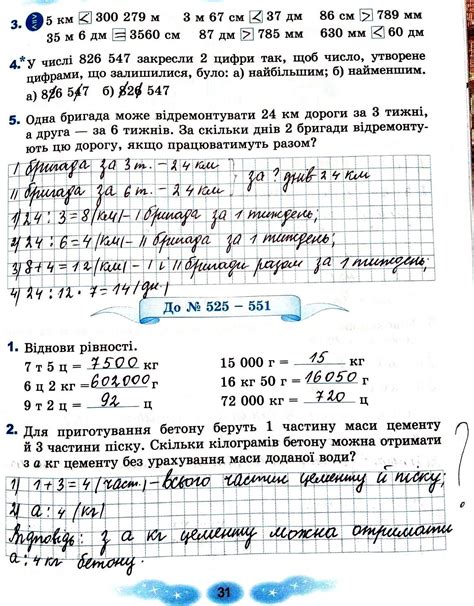 3. 5 км < 300 279 м 3 м 67 см < 37 дм 86 см > 789 мм
35 м 6 дм = 3560 см 87 дм > 785 мм 630 мм < 60 дм
4.* У числі 826 547 закресли 2 цифри так, щоб число, утворене
цифрами, що залишилися, було: а) найбільшим; б) найменшим.
а) 826 547 б) 826 547
5. Одна бригада може відремонтувати 24 км дороги за 3 тижні,
а друга — за 6 тижнів. За скільки днів 2 бригади відремонту-
ють цю дорогу, якщо працюватимуть разом?
I бригада за 3 т. – 24 км
II бригада за 6 т. – 24 км
за ? днів 24 км
1) 24 : 3 = 8 (км) – I бригада за 1 тиждень;
2) 24 : 6 = 4 (км) – II бригада за 1 тиждень;
3) 8 + 4 = 12 (км) – I і II бригади разом за 1 тиждень;
4) 24 : 12 · 7 = 14 (дн.)
До № 525 – 551
1. Віднови рівності.
7 т 5 ц = 7500 кг 15 000 г = 15 кг
6 ц 2 кг = 602000 г 16 кг 50 г = 16050 г
9 т 2 ц = 92 ц 72 000 кг = 720 ц
2. Для приготування бетону беруть 1 частину маси цементу
й 3 частини піску. Скільки кілограмів бетону можна отримати
з а кг цементу без урахування маси доданої води?
?
1) 1 + 3 = 4 (част.) – всього частин цементу й піску;
2) а : 4 (кг)
Відповідь: з а кг цементу можна отримати
а : 4 кг бетону.
31